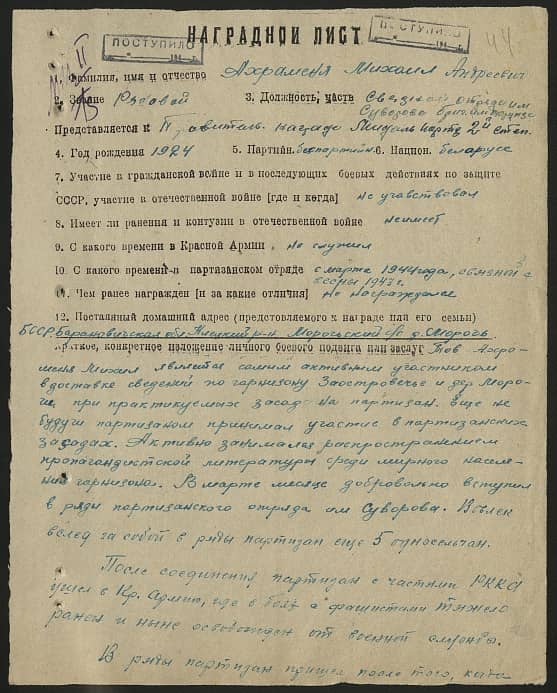 ПОСТУПИЛО
НАГРАДНОЙ ЛИСТ
ПОСТУПИЛО
44
1. Фамилия, имя и отчество Ахраменя Михаил Андреевич
2. Звание Рядовой 3. Должность, часть Связной отряда им
Суворова
Представляется к Правительс. награде Медаль парт. 2й степ.
4. Год рождения 1924 5. Партийн. беспартийн. 6. Национ. беларусс
7. Участие в гражданской войне и в последующих боевых действиях по защите
СССР, участие в отечественной войне [где и когда] не учавствовал
8. Имеет ли ранения и контузии в отечественной войне неимеет
9. С какого времени в Красной Армии не служил
10. С какого времени в партизанском отряде с марта 1944 года, связной с
весны 1943 г.
11. Чем ранее награжден [и за какие отличия] не награждался
12. Постаянный домашний адрес (представляемого к награде или его семьи)
БССР Барановичская обл Клецкий р-н Морочьский с/с д. Морочь
Краткое, конкретное изложение личного боевого подвига или заслуг Тов Ахра-
меня Михаил является самим активным участником
в доставке сведений по гарнизону Заостровечье и дер Моро-
чи, при практикуемых засадах на партизан. Еще не
будучи партизаном принимал участие в партизанских
засадах. Активно занимался распространением
пропагандистской литературы среди мирного населе-
ния гарнизона. В марте месяце добровольно вступил
в ряды партизанского отряда им Суворова. Вовлек
вслед за собой в ряды партизан еще 5 односельчан.
После соединения партизан с частями РККА
ушел в Кр. Армию, где в боях с фашистами тяжело
ранен и ныне освобожден от военной службы.
В ряды партизан пришел после того, когда